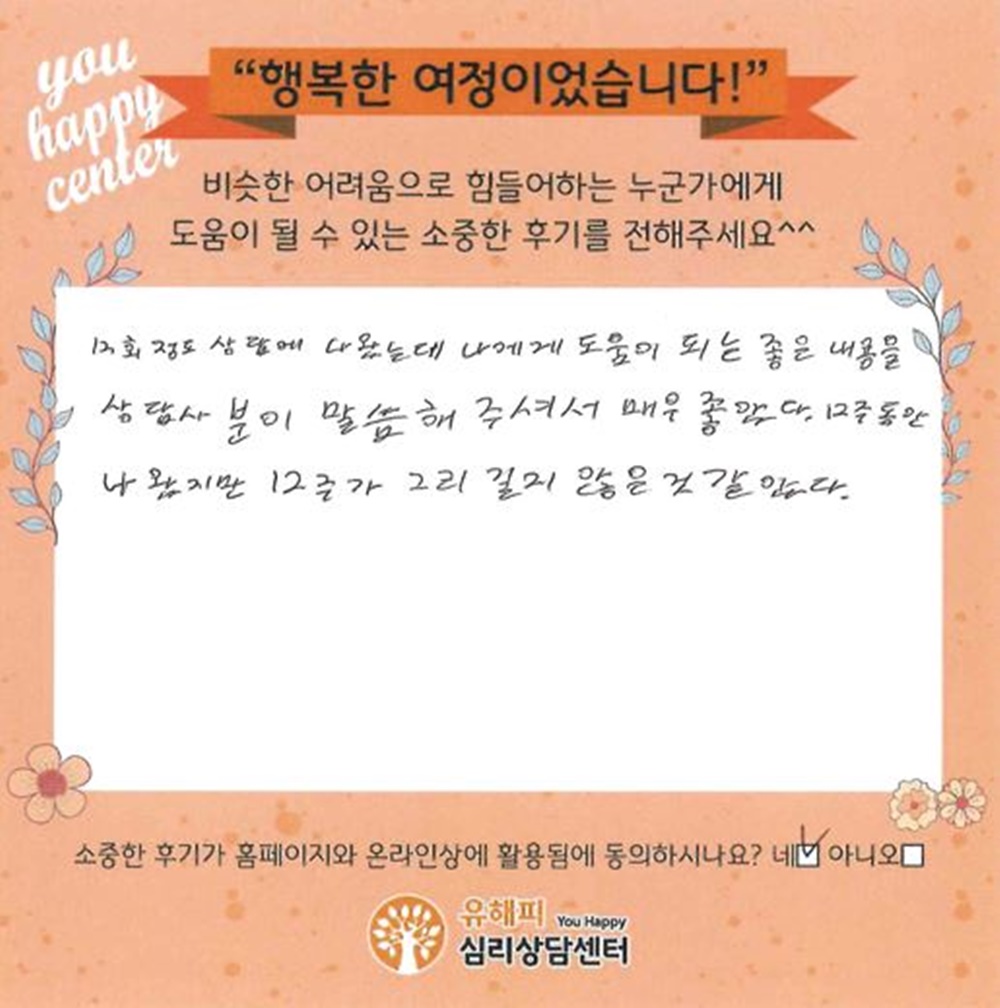 you
happy
center
“행복한 여정이었습니다!”
비슷한 어려움으로 힘들어하는 누군가에게
도움이 될 수 있는 소중한 후기를 전해주세요^^
회 정도 상담에 나왔는데 나에게 도움이 되는 좋은 내용을
상담사 분이 말씀해 주셔서 매우 좋았다. 12주동안
나왔지만 12주가 그리 길지 않은것 같았다.
소중한 후기가 홈페이지와 온라인상에 활용됨에 동의하시나요? 네☑ 아니오□
유해피 You Happy
심리상담센터